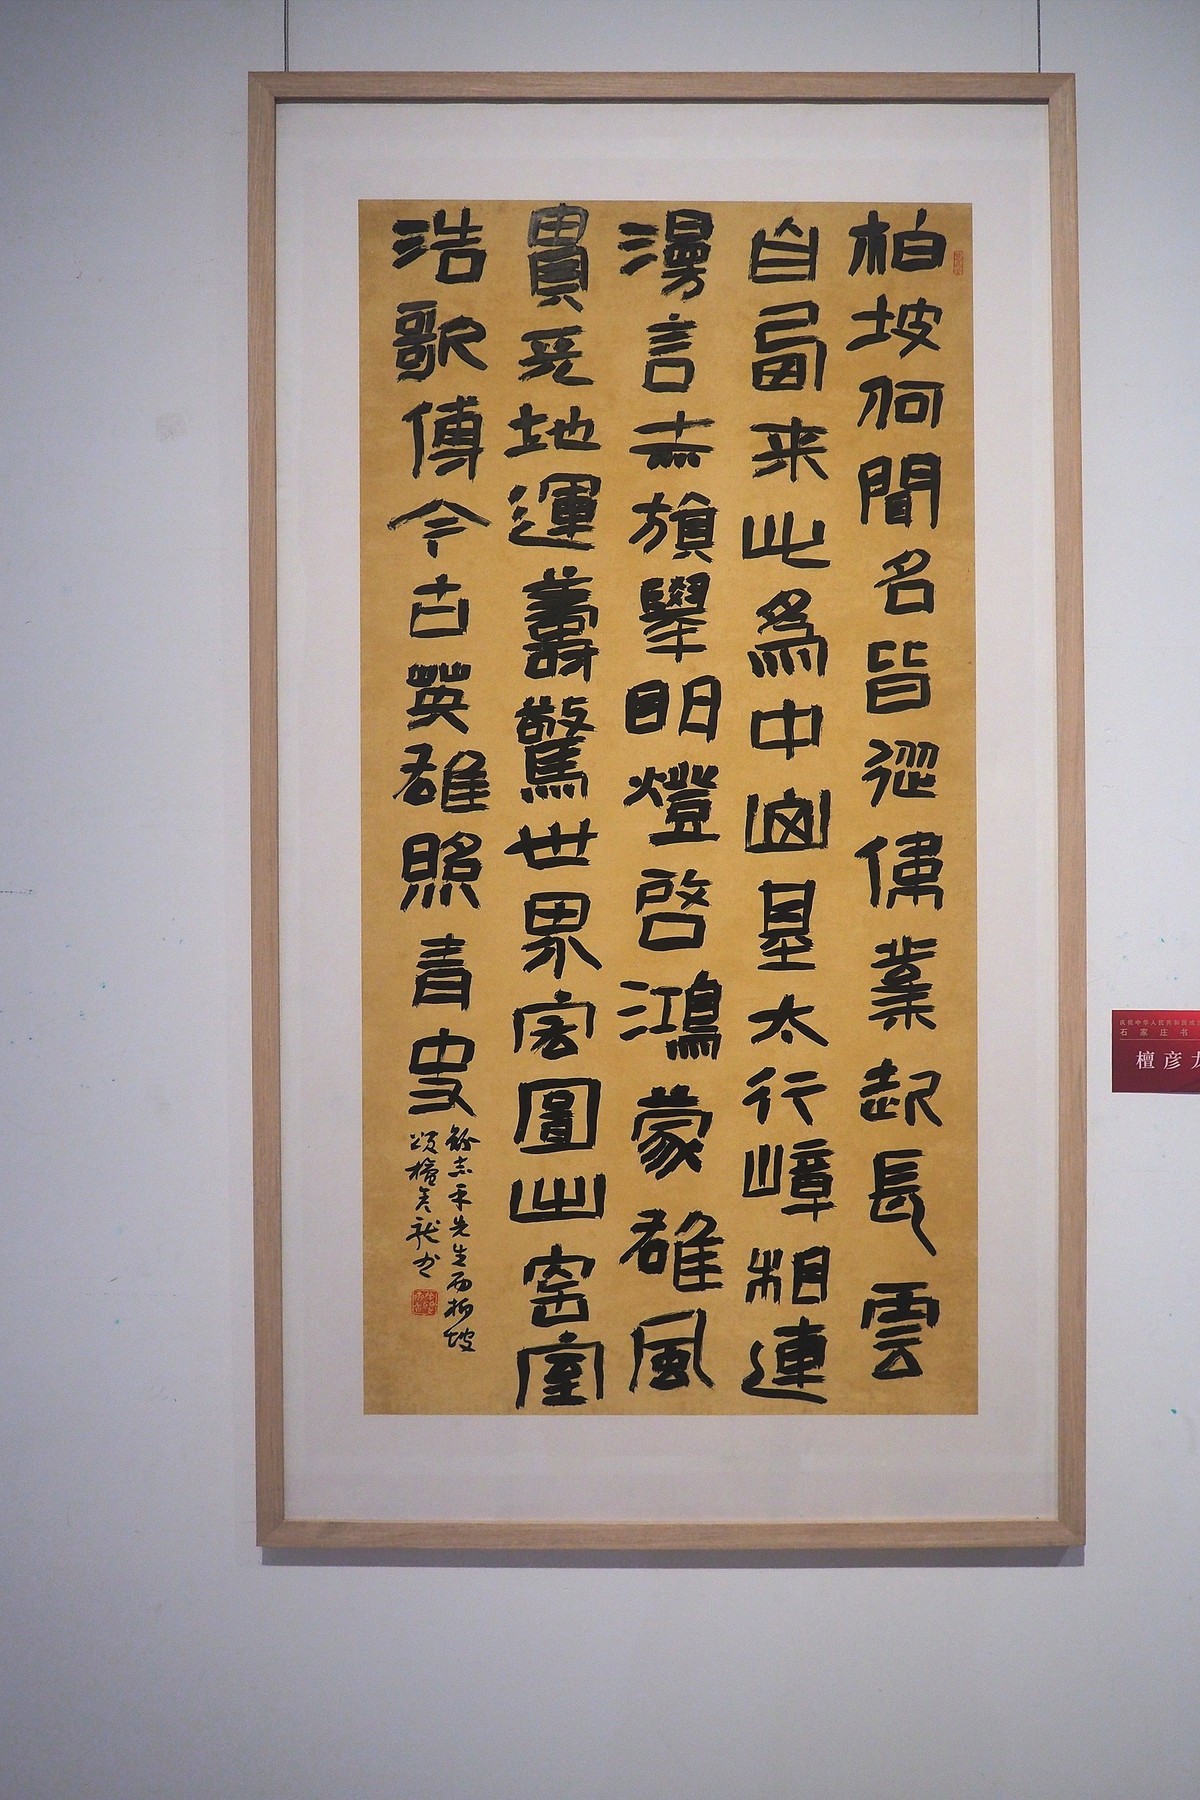 柏坡何聞名皆從偉業起長雲
自西来此為中國基太行嶂相連
漫言赤旗舉明燈啓鴻蒙雄風
貫天地運籌驚世界宏圖出窑室
浩歌傳今古英雄照青史
志平先生西柏坡
頌檀彦龍书
庆祝中华人民共和国成
石家庄书
檀彦龙